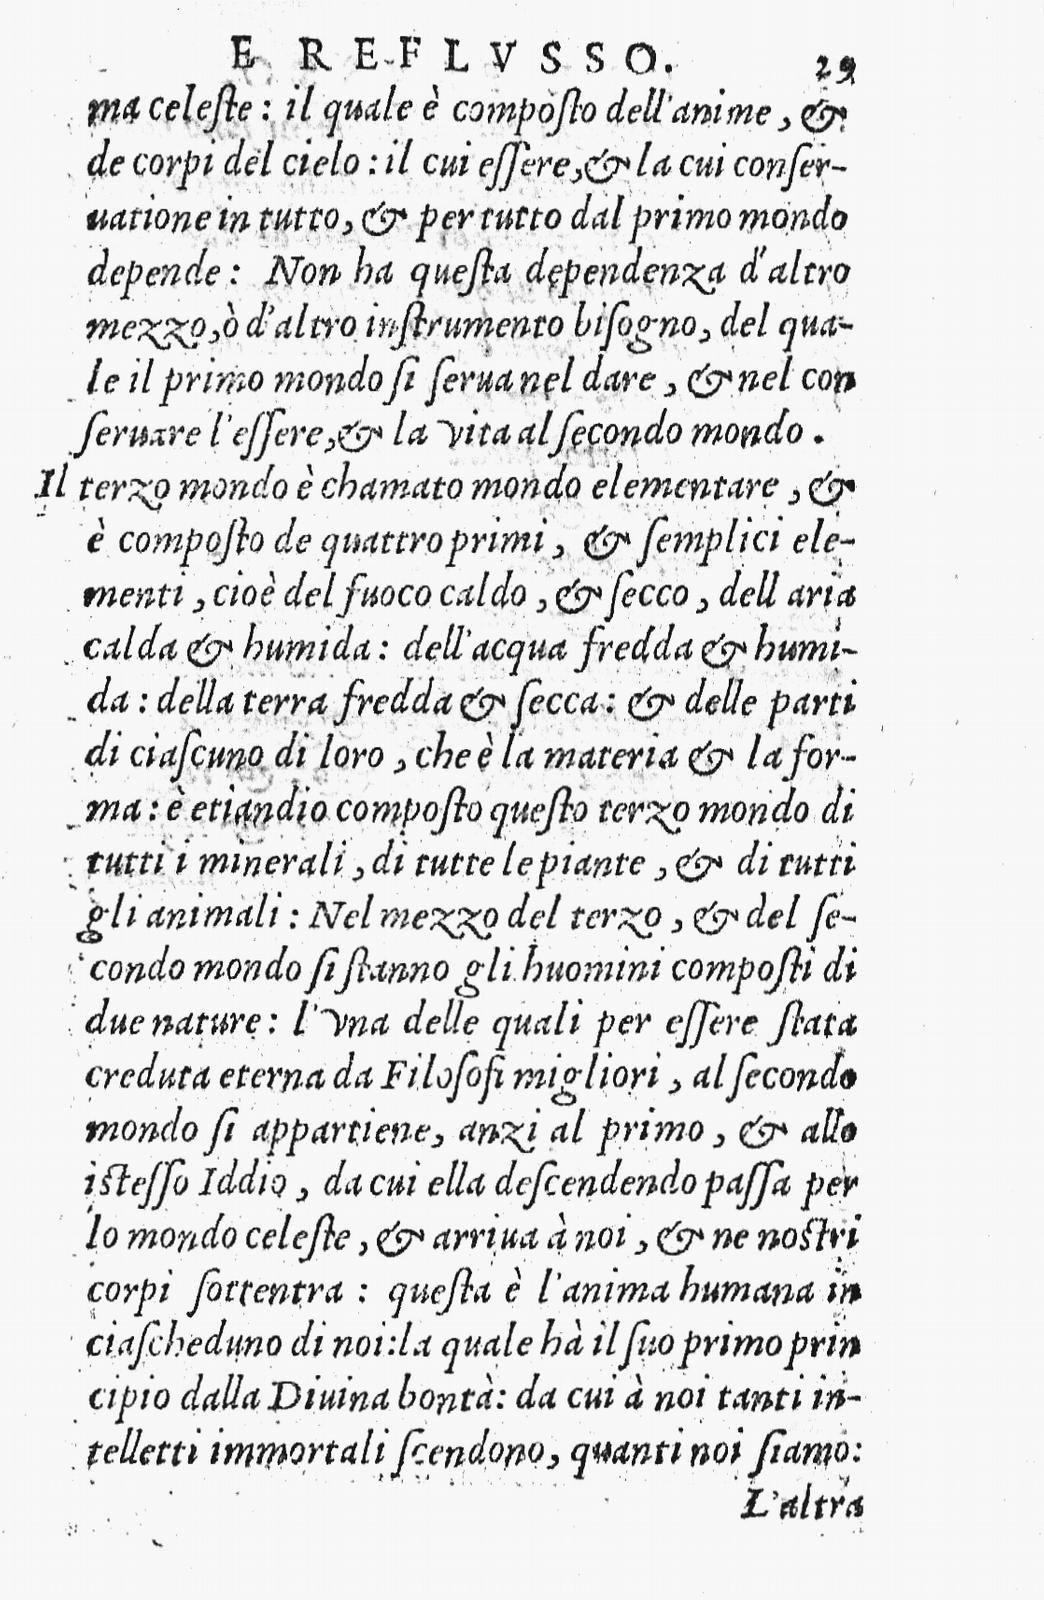 E REFLVSSO. 29
ma celeſte: il quale è compoſto dell'anime, &
de corpi del cielo: il cui eſſere, & la cui conſer-
uatione in tutto, & per tutto dal primo mondo
depende: Non ha queſta dependenza d'altro
mezzo, ò d'altro inſtrumento biſogno, del qua-
le il primo mondo ſi ſerua nel dare, & nel con
ſeruare l'eſſere, & la vita al ſecondo mondo.
Il terzo mondo è chamato mondo elementare, &
è compoſto de quattro primi, & ſemplici ele-
menti, cioè del fuoco caldo, & ſecco, dell aria
calda & humida: dell'acqua fredda & humi-
da: della terra fredda & ſecca: & delle parti
di ciaſcuno di loro, che è la materia & la for-
ma: è etiandio compoſto queſto terzo mondo di
tutti i minerali, di tutte le piante, & di tutti
gli animali: Nel mezzo del terzo, & del ſe-
condo mondo ſi ſtanno gli huomini compoſti di
due nature: l'vna delle quali per eſſere ſtata
creduta eterna da Filoſofi migliori, al ſecondo
mondo ſi appartiene, anzi al primo, & allo
iſteſſo Iddio, da cui ella deſcendendo paſſa per
lo mondo celeſte, & arriua à noi, & ne noſtri
corpi ſottentra: queſta è l'anima humana in
ciaſcheduno di noi: la quale hà il ſuo primo prin
cipio dalla Diuina bontà: da cui à noi tanti in-
telletti immortali ſcendono, quanti noi ſiamo:
L'altra